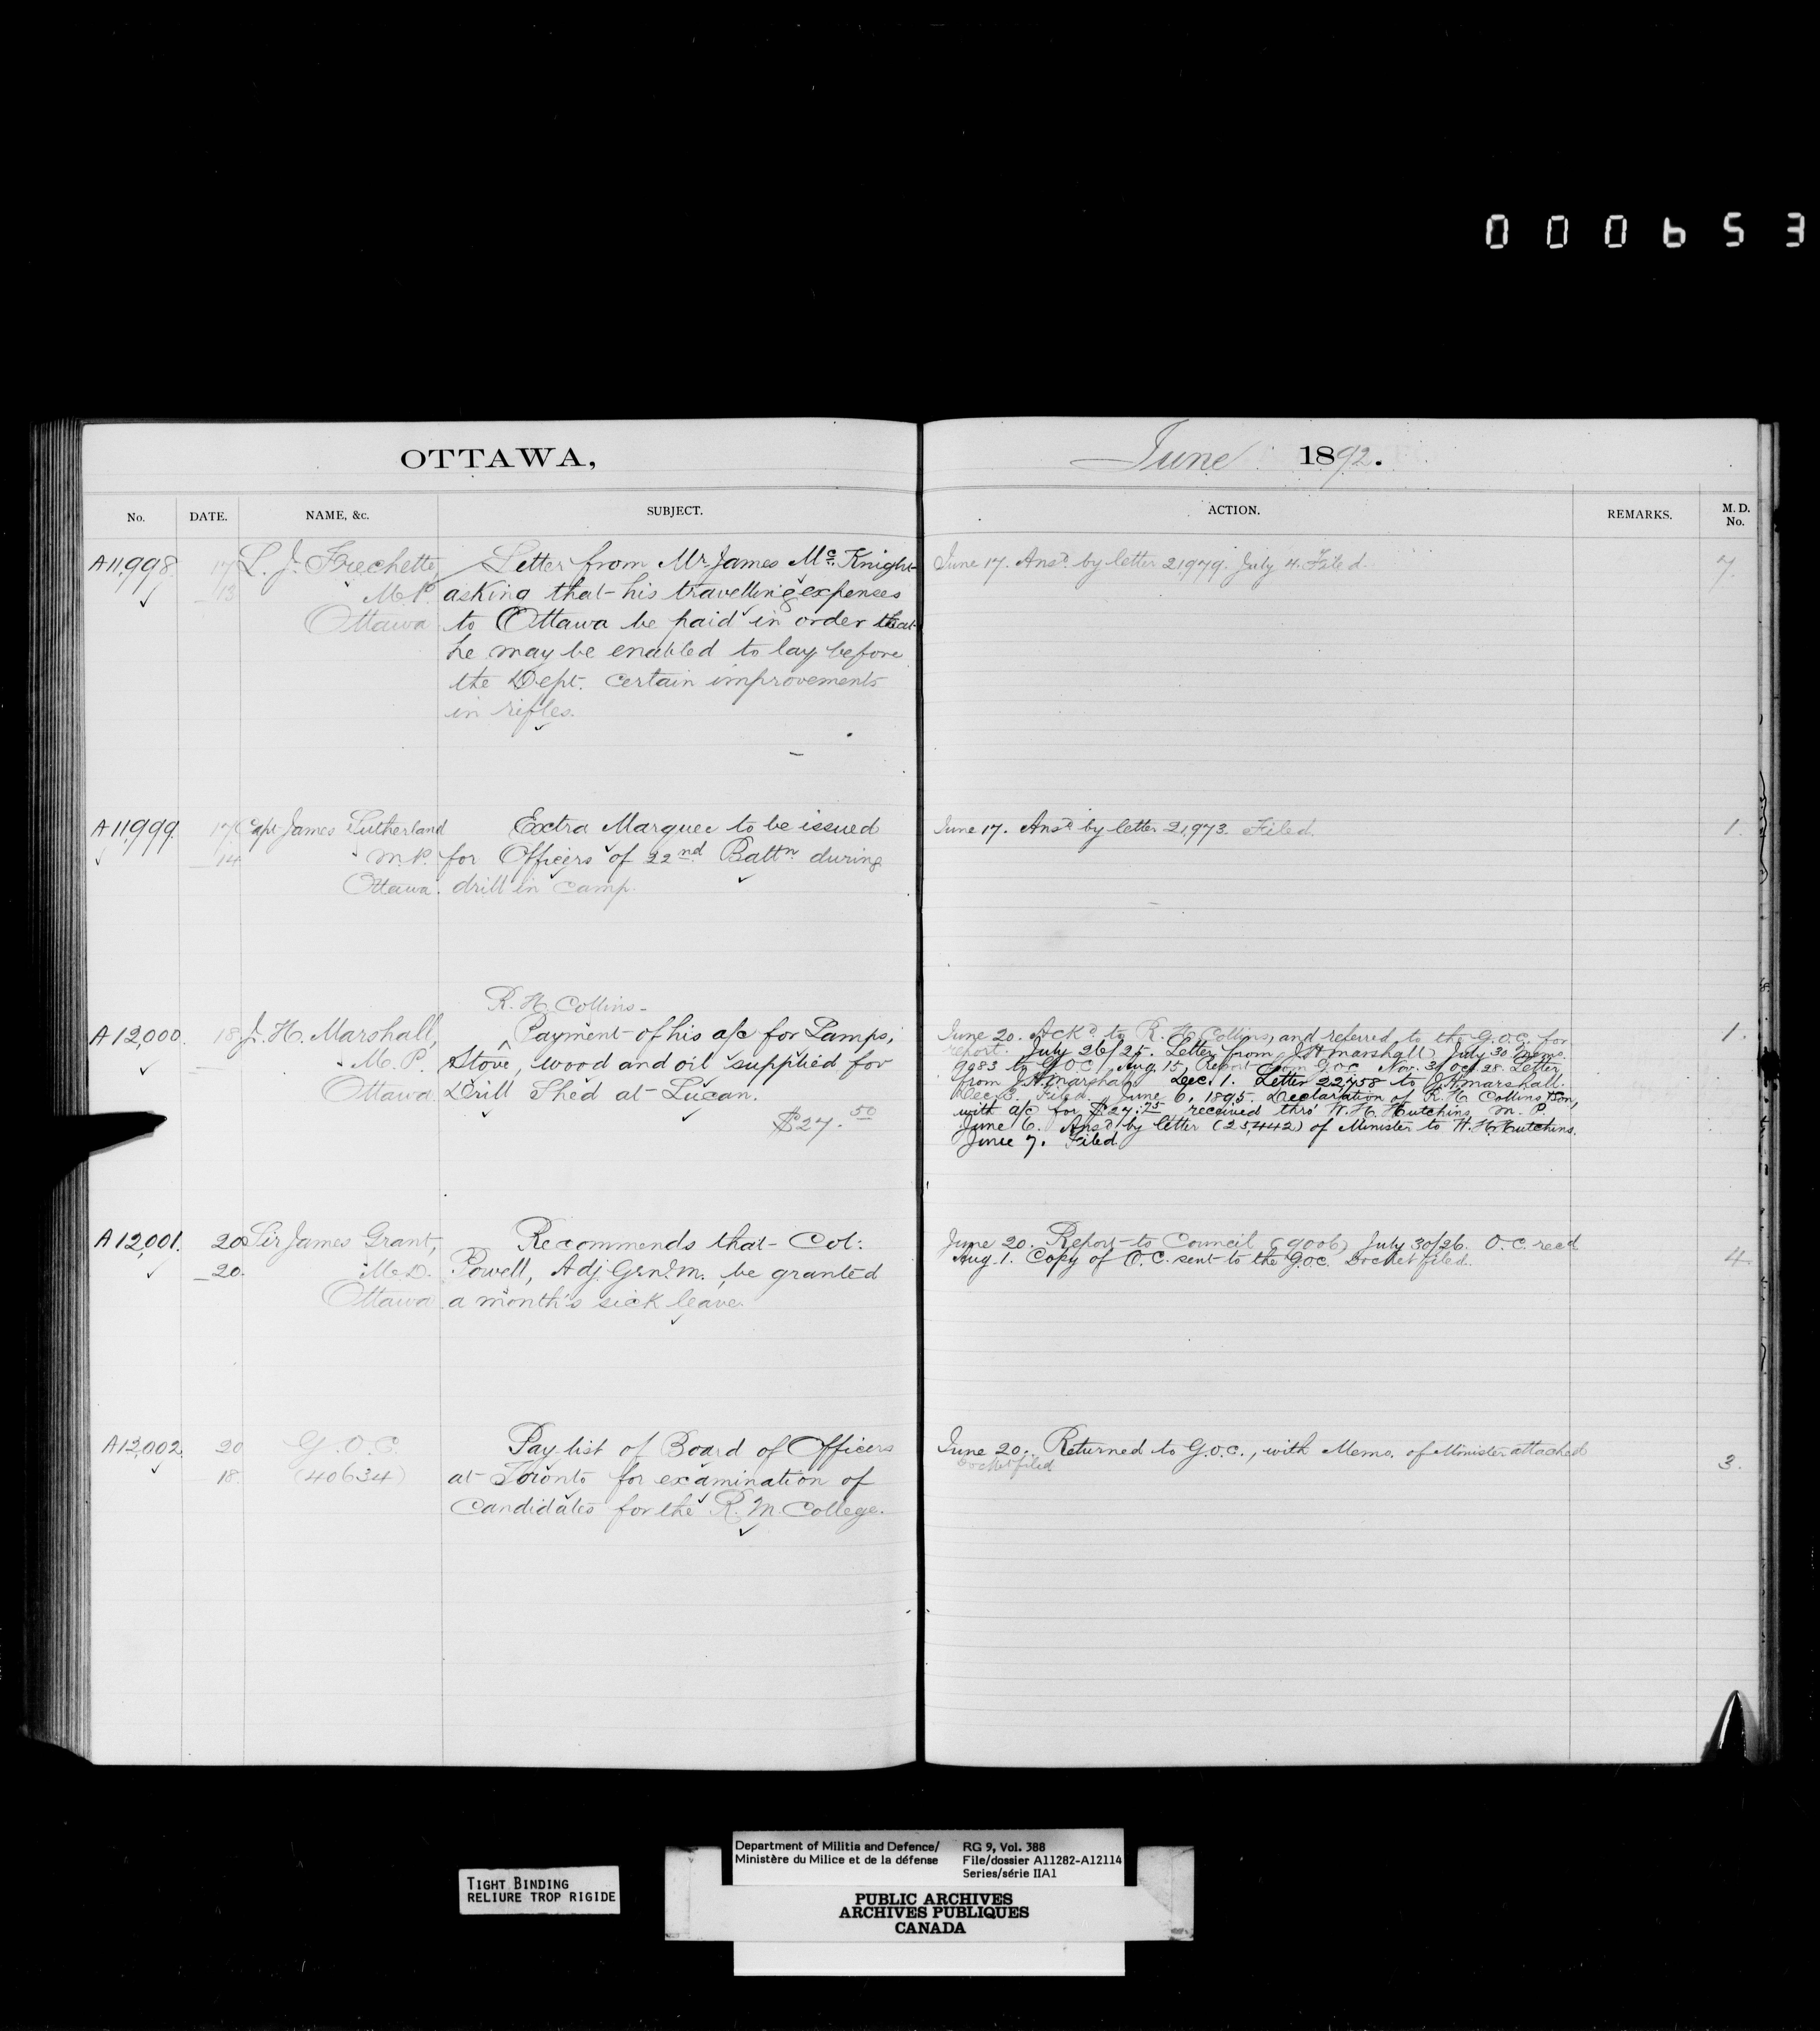 000653
OTTAWA,
June 1892.
No.
DATE.
NAME, &c.
SUBJECT.
ACTION.
REMARKS.
M. D.
No.
A11,998.
17
13
L. J. Frechette,
M.P.
Ottawa
Letter from Mr. James Mc.Knight
asking that his travelling expenses
to Ottawa be paid in order that
he may be enabled to lay before
the Dept. certain improvements
in rifles.
June 17. Ansd. by letter 21,979. July 4. Filed.
7.
A11,999.
17
14
Capt James Sutherland
M.P.
Ottawa.
Extra Marquee to be issued
for Officers of 22nd Battn. during
drill in camp.
June 17. Ansd. by letter 21,973. Filed.
1.
A12,000.
18
J. H. Marshall,
M.P.
Ottawa.
R. H. Collins
Payment of his a/c for Lamps,
Stove, wood and oil supplied for
Drill Shed at Lucan.
$27.50
June 20. Ackd. to R. H. Collins, and referred to the G.O.C. for
report. July 26/25. Letter from J.H. Marshall. July 30. Memo.
9983 to G.O.C. Aug. 15, Report from G.O.C. Nov. 3/Oct. 28. Letter
from J.H. Marshall. Dec. 1. Letter 22,758 to J.H. Marshall.
Dec. 3. Filed. June 6, 1895. Declaration of R. H. Collins & Son,
with a/c for $27.75 received thro' W. H. Hutchins, M. P.
June 6. Ansd. by letter (25,442) of Minister to W. H. Hutchins.
June 7. Filed.
1.
A12,001.
20
20.
Sir James Grant,
M.D.
Ottawa
Recommends that Col:
Powell, Adj. Genl. M. be granted
a month's sick leave.
June 20. Report to Council (9006) July 30/26. O.C. recd.
Aug. 1. Copy of O.C. sent to the G.O.C. Docket filed.
4.
A12,002.
20
18.
G.O.C.
(40634)
Pay-list of Board of Officers
at Toronto for examination of
Candidates for the R. M. College.
June 20. Returned to G.O.C., with Memo. of Minister attached
Docket filed
3.
TIGHT BINDING
RELIURE TROP RIGIDE
Department of Militia and Defence/
Ministère du Milice et de la défense
RG 9, Vol. 388
File/dossier A11282-A12114
Series/série IIA1
PUBLIC ARCHIVES
ARCHIVES PUBLIQUES
CANADA